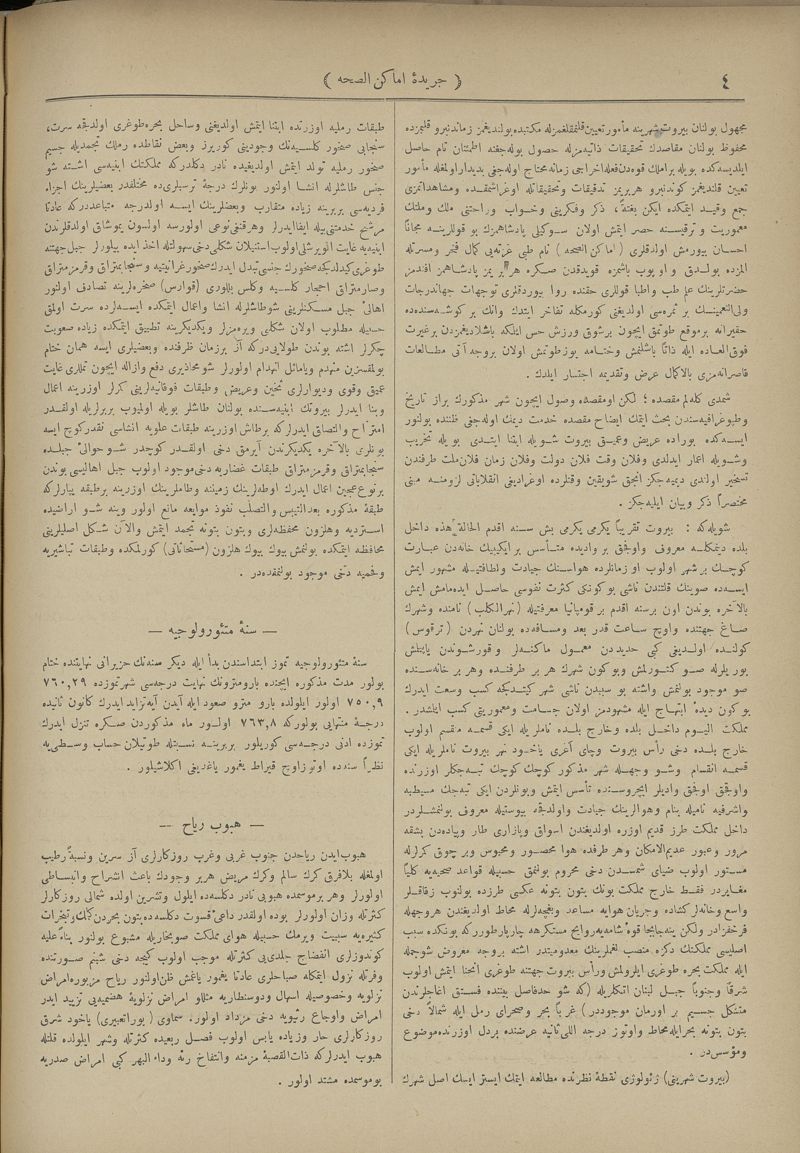 ٤
﴿ جريدهٔ اماكن الصحه ﴾
مجهول بولنان بيروت شهرينه مأمور تعيين قلنمقلغمزله مكتبده بولنديغمز زماندنبرو قلبمزده
محفوظ بولنان مقاصدك تحقيقات ذاتيه‌مزله حصول بوله‌جغنه اطمئنان تام حاصل
ايلديسه‌كده بويله براملك قوه‌دن فعله اخراجى زمانه محتاج اوله‌جنى بديدار اولمغله مأمور
تعيين قلنديغمز كوندنبرو هربريمز تدقيقات وتحقيقاته اوغراشمقده ومشاهداتمزى
جمع وقيد ايتمكده ايكن بغتةً ذكر وفكرينى وخواب وراحتنى ملك وملتك
معموريت و ترقيسنه حصر ايتمش اولان سوكيلى پادشاهمزك بو قوللرينه مجاناً
احسان بيورمش اولدقلرى (اماكن الصحه) نام طبى غزته‌يى كمال فخر ومسرتله
المزده بولدق و اوپوب باشمزه قويدقدن صكره هر بريمز پادشاهمز افندمز
حضرتلرينك علم طب واطبا قوللرى حقنده روا بيوردقلرى توجهات جهاندرجات
ولى النعمينك بر ثمره‌سى اولديغنى كورمكله تفاخر ايتدك وانك بر كوشه‌سنده‌ده
حقيرانه برموقع طوتمق ايچون برشوق ورزش حس ايتلكه باشلاديغمزدن برغيرت
فوق العاده ايله ذاتاً باشلنمش وختامه يوزطوتمش اولان بروجه آتى مطالعات
قاصرانه‌مزى بالاكمال عرض وتقديمه اجتسار ايلدك .
شمدى كله‌لم مقصده ؛ لكن اومقصده وصول ايچون شهر مذكورك براز تاريخ
وطبوغرافيه‌سندن بحث ايتمك ايضاح مقصده خدمت ديمك اوله‌جنى ظننده بولنور
ايسه‌كده بوراده عريض وعميق بيروت شويله ايتنا ايتدى بويله تخريب
وشويله اعمار ايدلدى وفلان وقت فلان دولت وفلان زمان فلان ملت طرفندن
تسخير اولندى ديميه‌جكز انجق شو يقين وقتلرده اوغرادينى انقلاباتى لزومنه مبنى
مختصراً ذكر وبيان ايليه‌جكز .
شويله كه : بيروت تقريباً يكرمى يكرمى بش سنه اقدم الحالة هذه داخل
بلده ديمكله معروف واوفجق بر واديده متأسس بر ايكيبيك خانه‌دن عبارت
كوچك برشهر اولوب اوزمانلرده هواسنك جيادت ولطافتيله مشهور ايمش
ايسه‌ده صوينك قلتندن ناشى بو كونكى كثرت نفوسى حاصل ايده‌مامش ايمش
بالآخره بوندن اون برسنه اقدم بر قومپانيا معرفتيله (نهر الكلب) نامنده وشهرك
صاغ جهتنده واوچ ساعت قدر بعد ومسافه‌ده بولنان نهردن (ترقوس)
كولنده اولدينى كبى حديددن معمول ماكنه‌لر و قورشوندن ياپلمش
بوريلرله صو كتورلمش وبوكون شهرك هر بر طرفنده وهر بر خانه‌سنده
صو موجود بولنمش واشته بو سببدن ناشى شهر كيتدكجه كسب وسعت ايدرك
بو كون ديدهٔ ابتهاج ايله مشهودمز اولان جسامت ومعموريتى كسب ايلشدر .
مملكت اليوم داخل بلده وخارج بلده ناملريله ايكى قسمه منقسم اولوب
خارج بلده دخى رأس بيروت وچاى آغزى ياخود نهر بيروت ناملريله ايكى
قسمه انقسام وشو وجهله شهر مذكور كوچك كوچك تپه‌جكلر اوزرنده
واوفجق اوفجق واديلر ايچروسنده تأسس ايتمش وبونلردن ايكى تپه‌جك مسيطبه
واشرفيه ناميله بنام وهوالرينك جيادت واولدقجه يبوستيله معروف بولنمشلردر
داخل مملكت طرز قديم اوزره اولديغندن اسواق وبازارى طار وپياده‌دن بشقه
مرور وعبور عديم الامكان وهر طرفده هوا محصور ومحبوس وبر چوق كرلرله
مستور اولوب ضياى شمسدن دخى محروم بولنمق حسبيله قواعد صحيه‌يه كلياً
مغايردر فقط خارج مملكت بونك بتون بتونه عكسى طرزده بولنوب زقاقلر
واسع وخانه‌لر كشاده وجريان هوايه مساعد وبغچه‌لرله محاط اولديغندن هروجهله
فرحفزادر ولكن ينه جابجا قوهٔ شامه‌يه روايح مستكرهه چارپار طورركه بونكده سبب
اصليسى مملكتك دكره منصب لغملرينك معدوميتدر اشته بروجه معروض شوجمله
ايله مملكت بحره طوغرى ايلرولمش ورأس بيروت جهتنه طوغرى انحنا ايتمش اولوب
شرقاً وجنوباً جبل لبنان اتكلريله (كه شو حدفاصل بيننده فستق اغاجلرندن
متشكل جسيم بر اورمان موجوددر) غرباً بحر وصحراى رمل ايله شمالاً دخى
بتون بتونه بحرايله محاط واوتوز درجه اللى ثانيه عرضنده بردل اوزرنده موضوع
ومؤسس‌در .
(بيروت شهرينى) ژئولوژى نقطهٔ نظرنده مطالعه ايتمك ايستر ايسك اصل شهرك
طبقات رمليه اوزرنده ابتنا ايتمش اولديغنى وساحل بحره طوغرى اولدقجه سرت،
سنجابى صخور كلسيه‌نك وجودينى كوريرز وبعض نقاطده رملك تجمديله جسيم
صخور رمليه تولد ايتمش اولديغيده نادر دكلدركه مملكتك ابنيه‌سى اشته شو
جنس طاشلرله انشا اولنور بونلرك درجهٔ ترسبلرى‌ده مختلفدر بعضيلرينك اجزاء
فرديه‌سى بربرينه زياده متقارب وبعضلرينك ايسه اولدرجه متباعددركه عادتا
مرشح خدمتنى بيله ايفا ايدرلر وهر قنغى نوعى اولورسه اولسون يوموشاق اولدقلرندن
ابنيه‌يه غايت الويرشلى اولوب استنيلان شكلى دخى سهولتله اخذ ايده بيلورلر جبل جهتنه
طوغرى كيدلدكجه صخورك جنسى تبدل ايدرك صخور غرانيتيه وسنجابمتراق وقرمزمتراق
وصارمتراق احجار كلسيه وكلس بللاودى (قوارس) صخره‌لرينه تصادف اولنور
اهالئ جبل مسكنلرينى شو طاشلرله انشا واعمال ايتمكده ايسه‌لرده سرت اولمق
حسبيله مطلوب اولان شكلى ويره‌مزلر ويكديكرينه تطبيق ايتمكده زياده صعوبت
چكرلر اشته بوندن طولايى‌دركه آز برزمان ظرفنده وبعضيلرى ايسه همان ختام
بولمقسزين منهدم ويامائل انهدام اولورلر شو محاذيرى دفع وازاله ايچون تمللرى غايت
عميق وقوى وديوارلرى ثخين وعريض وطبقات فوقانيه‌لرينى كرلر اوزرينه اعمال
وبنا ايدرلر بيروتك ابنيه‌سنده بولنان طاشلر بويله اوليوب بربرلريله اولقدر
امتزاج والتصاق ايدرلر كه برطاش اوزرينه طبقات علويه انشاسى نقدر كوچ ايسه
بونلرى بالاخره يكديكرندن آيرمق دخى اولقدر كوچدر شو حوالئ جبلده
سنجابمتراق وقرمزمتراق طبقات غضاريه دخى موجود اولوب جبل اهاليسى بوندن
برنوع عجين اعمال ايدرك اوطه‌لرينك زميننه وطاملرينك اوزرينه برطبقه ياپارلركه
طبقهٔ مذكوره بعد التيبس والتصلب نفوذ مياهه مانع اولور وينه شو اراضيده
استرديه وهلزون محفظه‌لرى وبتون بتونه تجمد ايتمش والآن شكل اصليلرينى
محافظه ايتمكده بولنمش بيوك بيوك هلزون (مستحاثاتى) كورلمكده وطبقات تباشيريه
وفحميه دخى موجود بولنمقده‌در .
— سنهٔ متئورولوجيه —
سنهٔ متئورولوجيه تموز ابتداسندن بدأ ايله ديكر سنه‌نك حزيرانى نهايتنده ختام
بولور مدت مذكوره ايچنده بارومترونك نهايت درجه‌سى شهر تموزده ٧٦٠,٢٩
٧٥٠,٩ اولور ايلولده بارو مترو صعود ايله آيدن آيه تزايد ايدرك كانون ثانيده
درجهٔ منتهايى بولوركه ٧٦٣,٨ اولور ماه مذكوردن صكره تنزل ايدرك
تموزده ادنى درجه‌سى كوريلور بربرينه نسبتله طوتيلان حساب وسطى‌يه
نظراً سنه‌ده اوتوز اوچ قيراط يغمور ياغدينى اكلاشيلور .
— هبوب رياح —
هبوب ايدن رياحدن جنوب غربى وغرب روزكارلرى آز سرين ونسبةً رطيب
اولمغله بلافرق كرك سالم وكرك مريض هربر وجودك باعث انشراح وانبساطى
اولورلر وهر برموسمده هبوبى نادر دكلسه‌ده ايلول وتشرين اولده شمالى روزكارلر
كثرتله وزان اولورلر بوده اولقدر داعئ قسوت دكلسه‌ده بتون بحردن كلمك وتبخرات
كثيره‌يه سببيت ويرمك حسبيله هواى مملكت صو بخاريله مشبوع بولنور بناءً عليه
كوندوزلرى انفضاج جلدى‌يى كثرتله موجب اولوب كيجه دخى شبنم صورتنده
وفرتله نزول ايتمكله صباحلرى عادتا يغمور ياغمش ظن اولنور رياح مزبوره امراض
نزلويه وخصوصيله اسهال ودوسنطاريه مثللو امراض نزلويهٔ هضميه‌يى تزييد ايدر
امراض واوجاع رئويه دخى مزداد اولور. سماوى (بورا تعبيرى) ياخود شرق
روزكارلرى حار وزياده يابس اولوب فصل ربيعده كثرتله وشهر ايلولده قلتله
هبوب ايدرلركه ذات القصبهٔ مزمنه وانتفاخ رئه وداء البهر كبى امراض صدريه
بوموسمده مشتد اولور .